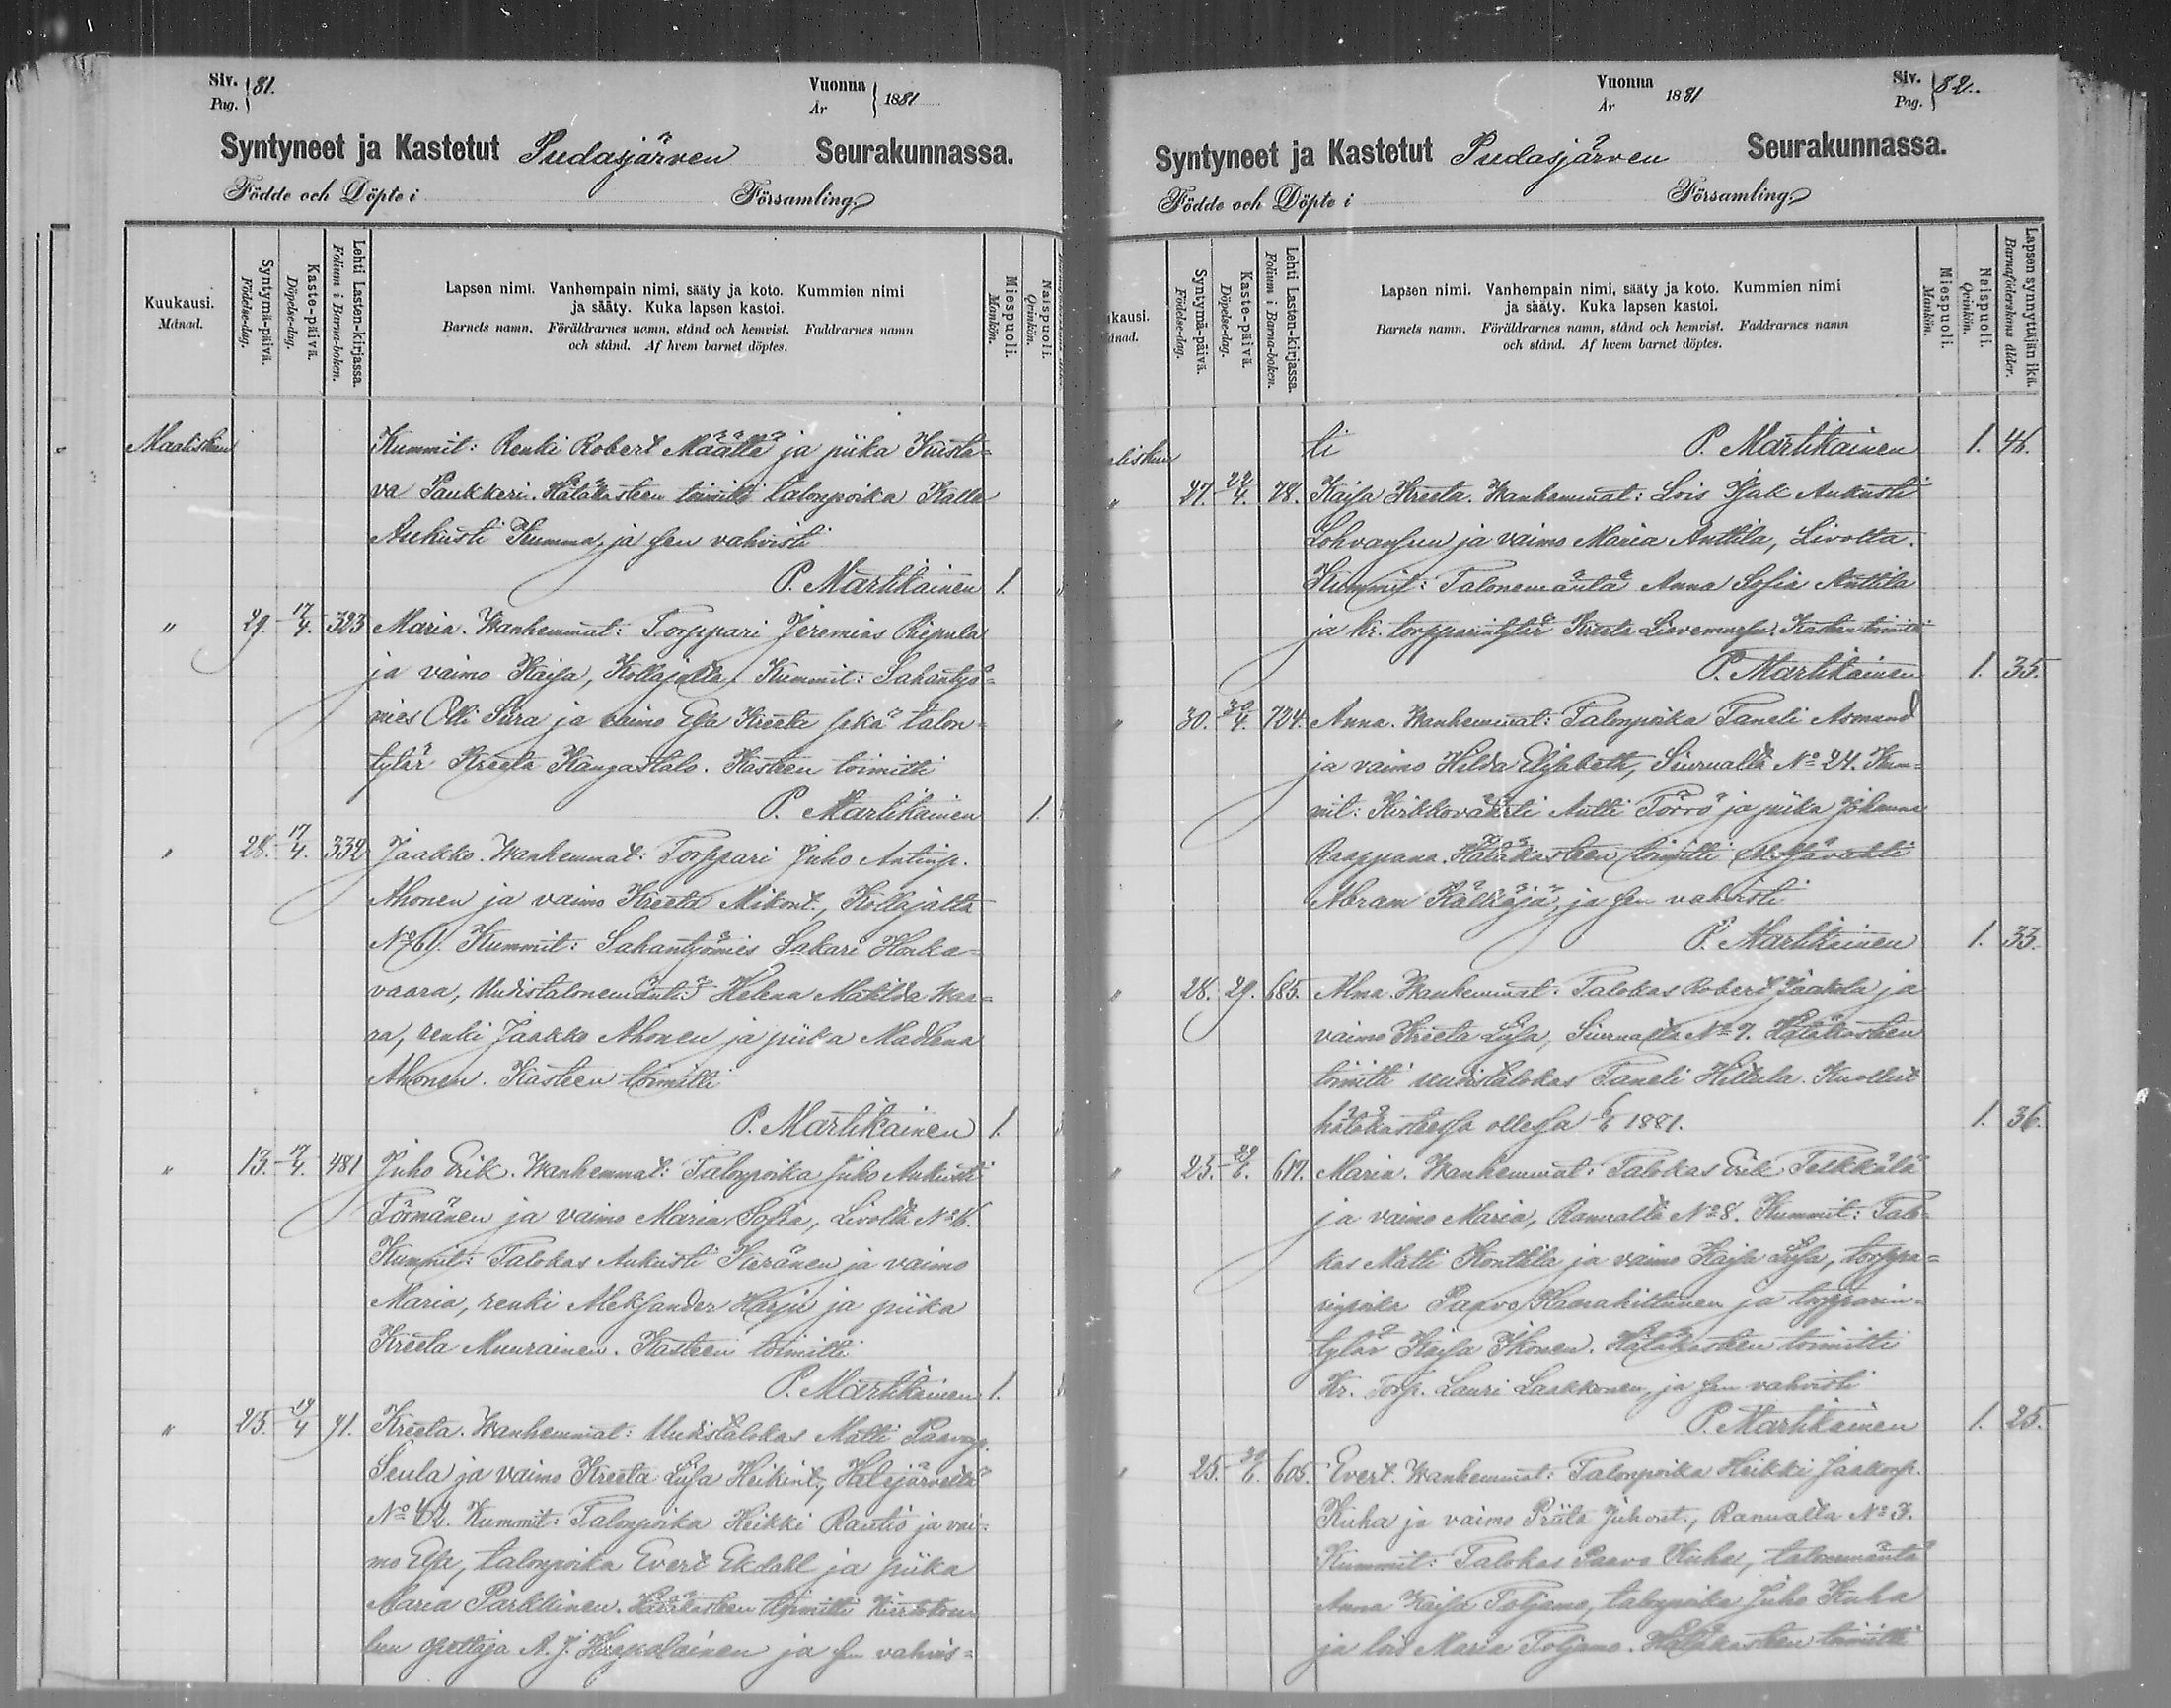 Siv. 81.
Pag.
Vuonna 1881
År
Syntyneet ja Kastetut Pudasjärven Seurakunnassa.
Födde och Döpte i Församling
Kuukausi.
Månad.
Syntymä-päivä.
Födelse-dag.
Kaste-päivä.
Döpelse-dag.
Lehti Lasten-kirjassa.
Folium i Barna-boken.
Lapsen nimi. Vanhempain nimi, sääty ja koto. Kummien nimi
ja sääty. Kuka lapsen kastoi.
Barnets namn. Föräldrarnes namn, stånd och hemvist. Faddrarnes namn
och stånd. Af hvem barnet döptes.
Miespuoli.
Mankön.
Naispuoli.
Qvinkön.
Maaliskuu Kummit: Renki Robert Määttä ja piika Kusta=
va Paukkeri. Hätäkasteen toimitti talonpoika Kalle
Aukusti Kumma, ja sen vahvisti
P. Martikainen 1.
" 29. 17/4. 323 Maria. Wanhemmat: Torppari Jeremias Riepula
ja vaimo Kaisa, Kollajalla. Kummit: Sahantyö=
mies Olli Sirra ja vaimo Elsa Kreeta sekä talon=
tytär Kreeta Kangastalo. Kasteen toimitti
P. Martikainen 1.
" 28. 17/4. 332 Jaakko. Wanhemmat: Torppari Juho Antinp.
Ahonen ja vaimo Kreeta Mikont., Kollajalta
No 61. Kummit: Sahantyömies Sakari Honka=
vaara, Uudistalonemäntä Helena Matilda Waa=
ra, renki Jaakko Ahonen ja piika Madlena
Ahonen. Kasteen toimitti
P. Martikainen 1.
" 13. 17/4. 481 Juho Erik. Wanhemmat: Talonpoika Juho Aukusti
Törmänen ja vaimo Maria Sofia, Livolta No 16.
Kummit: Talokas Aukusti Keränen ja vaimo
Maria, renki Aleksander Harju ja piika
Kreeta Muurainen. Kasteen toimitti
P. Martikainen 1.
" 25. 19/4 91. Kreeta. Wanhemmat: Uudistalokas Matti Paavonp.
Seula ja vaimo Kreeta Liisa Heikint., Hetejärveltä
No 42. Kummit: Talonpoika Heikki Rautio ja vai=
mo Elsa, talonpoika Evert Ekdahl ja piika
Maria Parkkinen. Hätäkasteen toimitti Kiertokou
lun opettaja A. J. Happolainen ja sen vahvis=
Vuonna 1881
År
Siv. 82.
Pag.
Syntyneet ja Kastetut Pudasjärven Seurakunnassa.
Födde och Döpte i Församling
ukausi.
ånad.
Syntymä-päivä.
Födelse-dag.
Kaste-päivä.
Döpelse-dag.
Lehti Lasten-kirjassa.
Folium i Barna-boken.
Lapsen nimi. Vanhempain nimi, sääty ja koto. Kummien nimi
ja sääty. Kuka lapsen kastoi.
Barnets namn. Föräldrarnes namn, stånd och hemvist. Faddrarnes namn
och stånd. Af hvem barnet döptes.
Miespuoli.
Mankön.
Naispuoli.
Qvinkön.
Lapsen synnyttäjän ikä.
Barnaföderskans ålder.
liskuu ti P. Martikainen 1. 46.
" 27. 22/4. 78. Kaisa Kreeta. Wanhemmat: Lois Isak Aukusti
Lohvansuu ja vaimo Maria Anttila, Livolta.
Kummit: Talonemäntä Anna Sofia Anttila
ja kr. torpparintytär Kreeta Lievemursu. Kasteen toimitti
P. Martikainen 1. 35.
" 30. 30/4. 724. Anna. Wanhemmat: Talonpoika Taneli Asmund
ja vaimo Hilda Elisabeth, Siurualta No 24. Kum=
mit: Kirkkoväärti Antti Törrö ja piika Johanna
Raappana. Hätäkasteen toimitti
Abram Kälkäjä, ja sen vahvisti
P. Martikainen 1. 33.
" 28. 29. 685. Alma. Wanhemmat: Talokas Robert Jaakola ja
vaimo Kreeta Liisa, Siurualta No 7. Hätäkasteen
toimitti uudistalokas Taneli Hiltula. Kuollut
hätäkasteessa ollessa 1881. 1. 36.
" 25. 29/6. 617. Maria. Wanhemmat: Talokas Erik Teikkälä
ja vaimo Maria, Ranualta No 8. Kummit: Talo=
kas Matti Konttila ja vaimo Kaisa Liisa, torppa=
rinpoika Paavo Haarahiltunen ja torpparin=
tytär Kaisa Ikonen. Hätäkasteen toimitti
Kr. Torp. Lauri Laakkonen, ja sen vahvisti
P. Martikainen 1. 25.
" 25. 30/6. 605. Evert. Wanhemmat: Talonpoika Heikki Jaakonp.
Kuha ja vaimo Priita Juhont., Ranualta No 3.
Kummit: Talokas Paavo Kuha, talonemäntä
Anna Kaisa Toljamo, talonpoika Juho Kuha
ja lois Maria Toljamo. Hätäkasteen toimitti